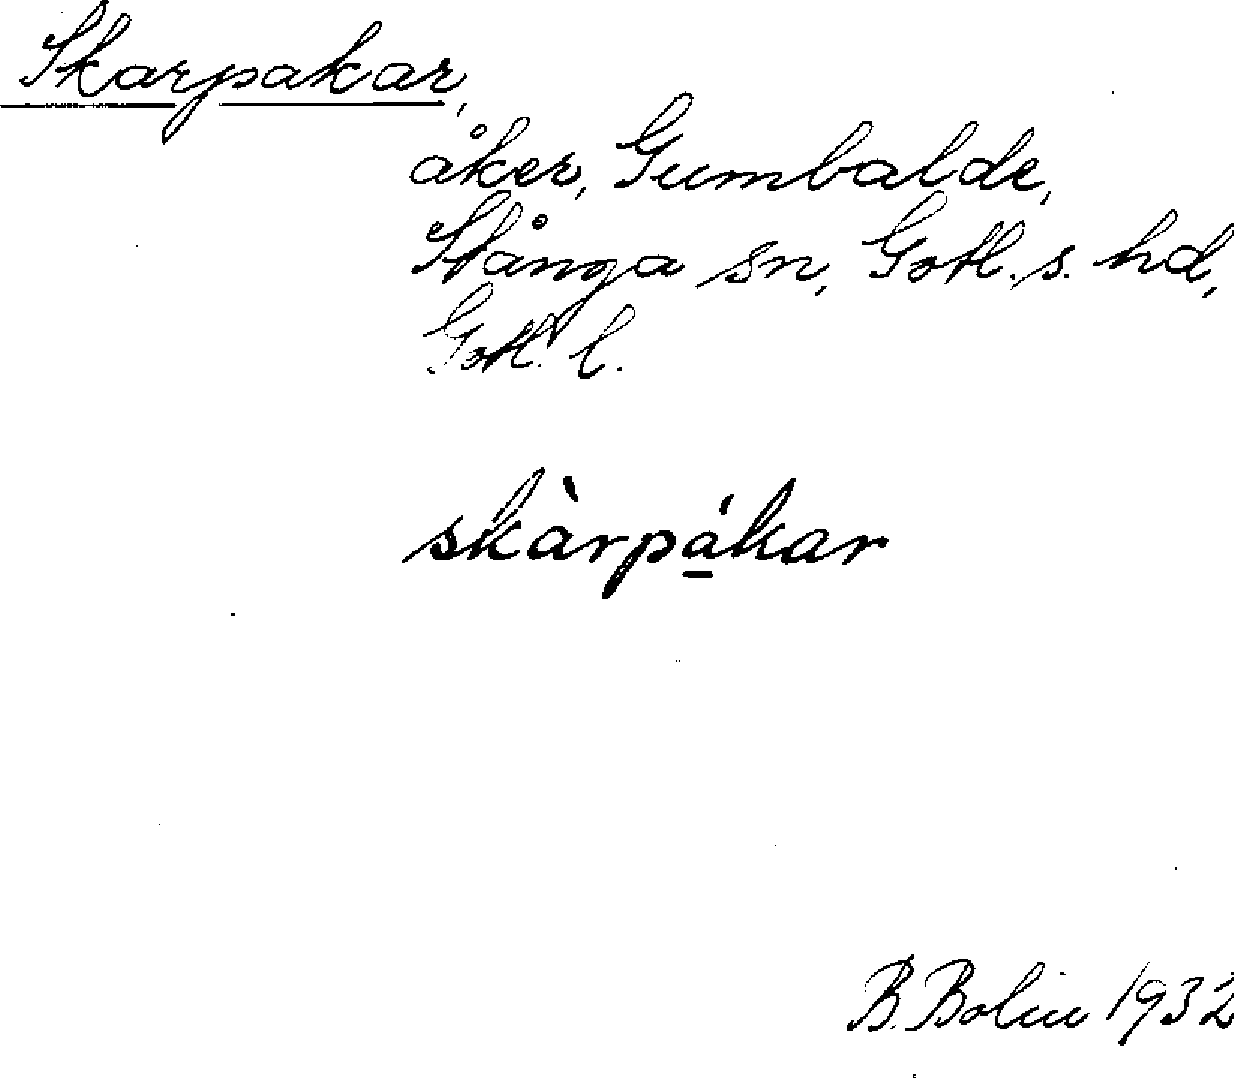 Skarpakar,
åker, Gumbalde,
Stånga sn, Gotl. s. hd,
Gotl. l.
skàrpá̱kar
B. Bolin 1932